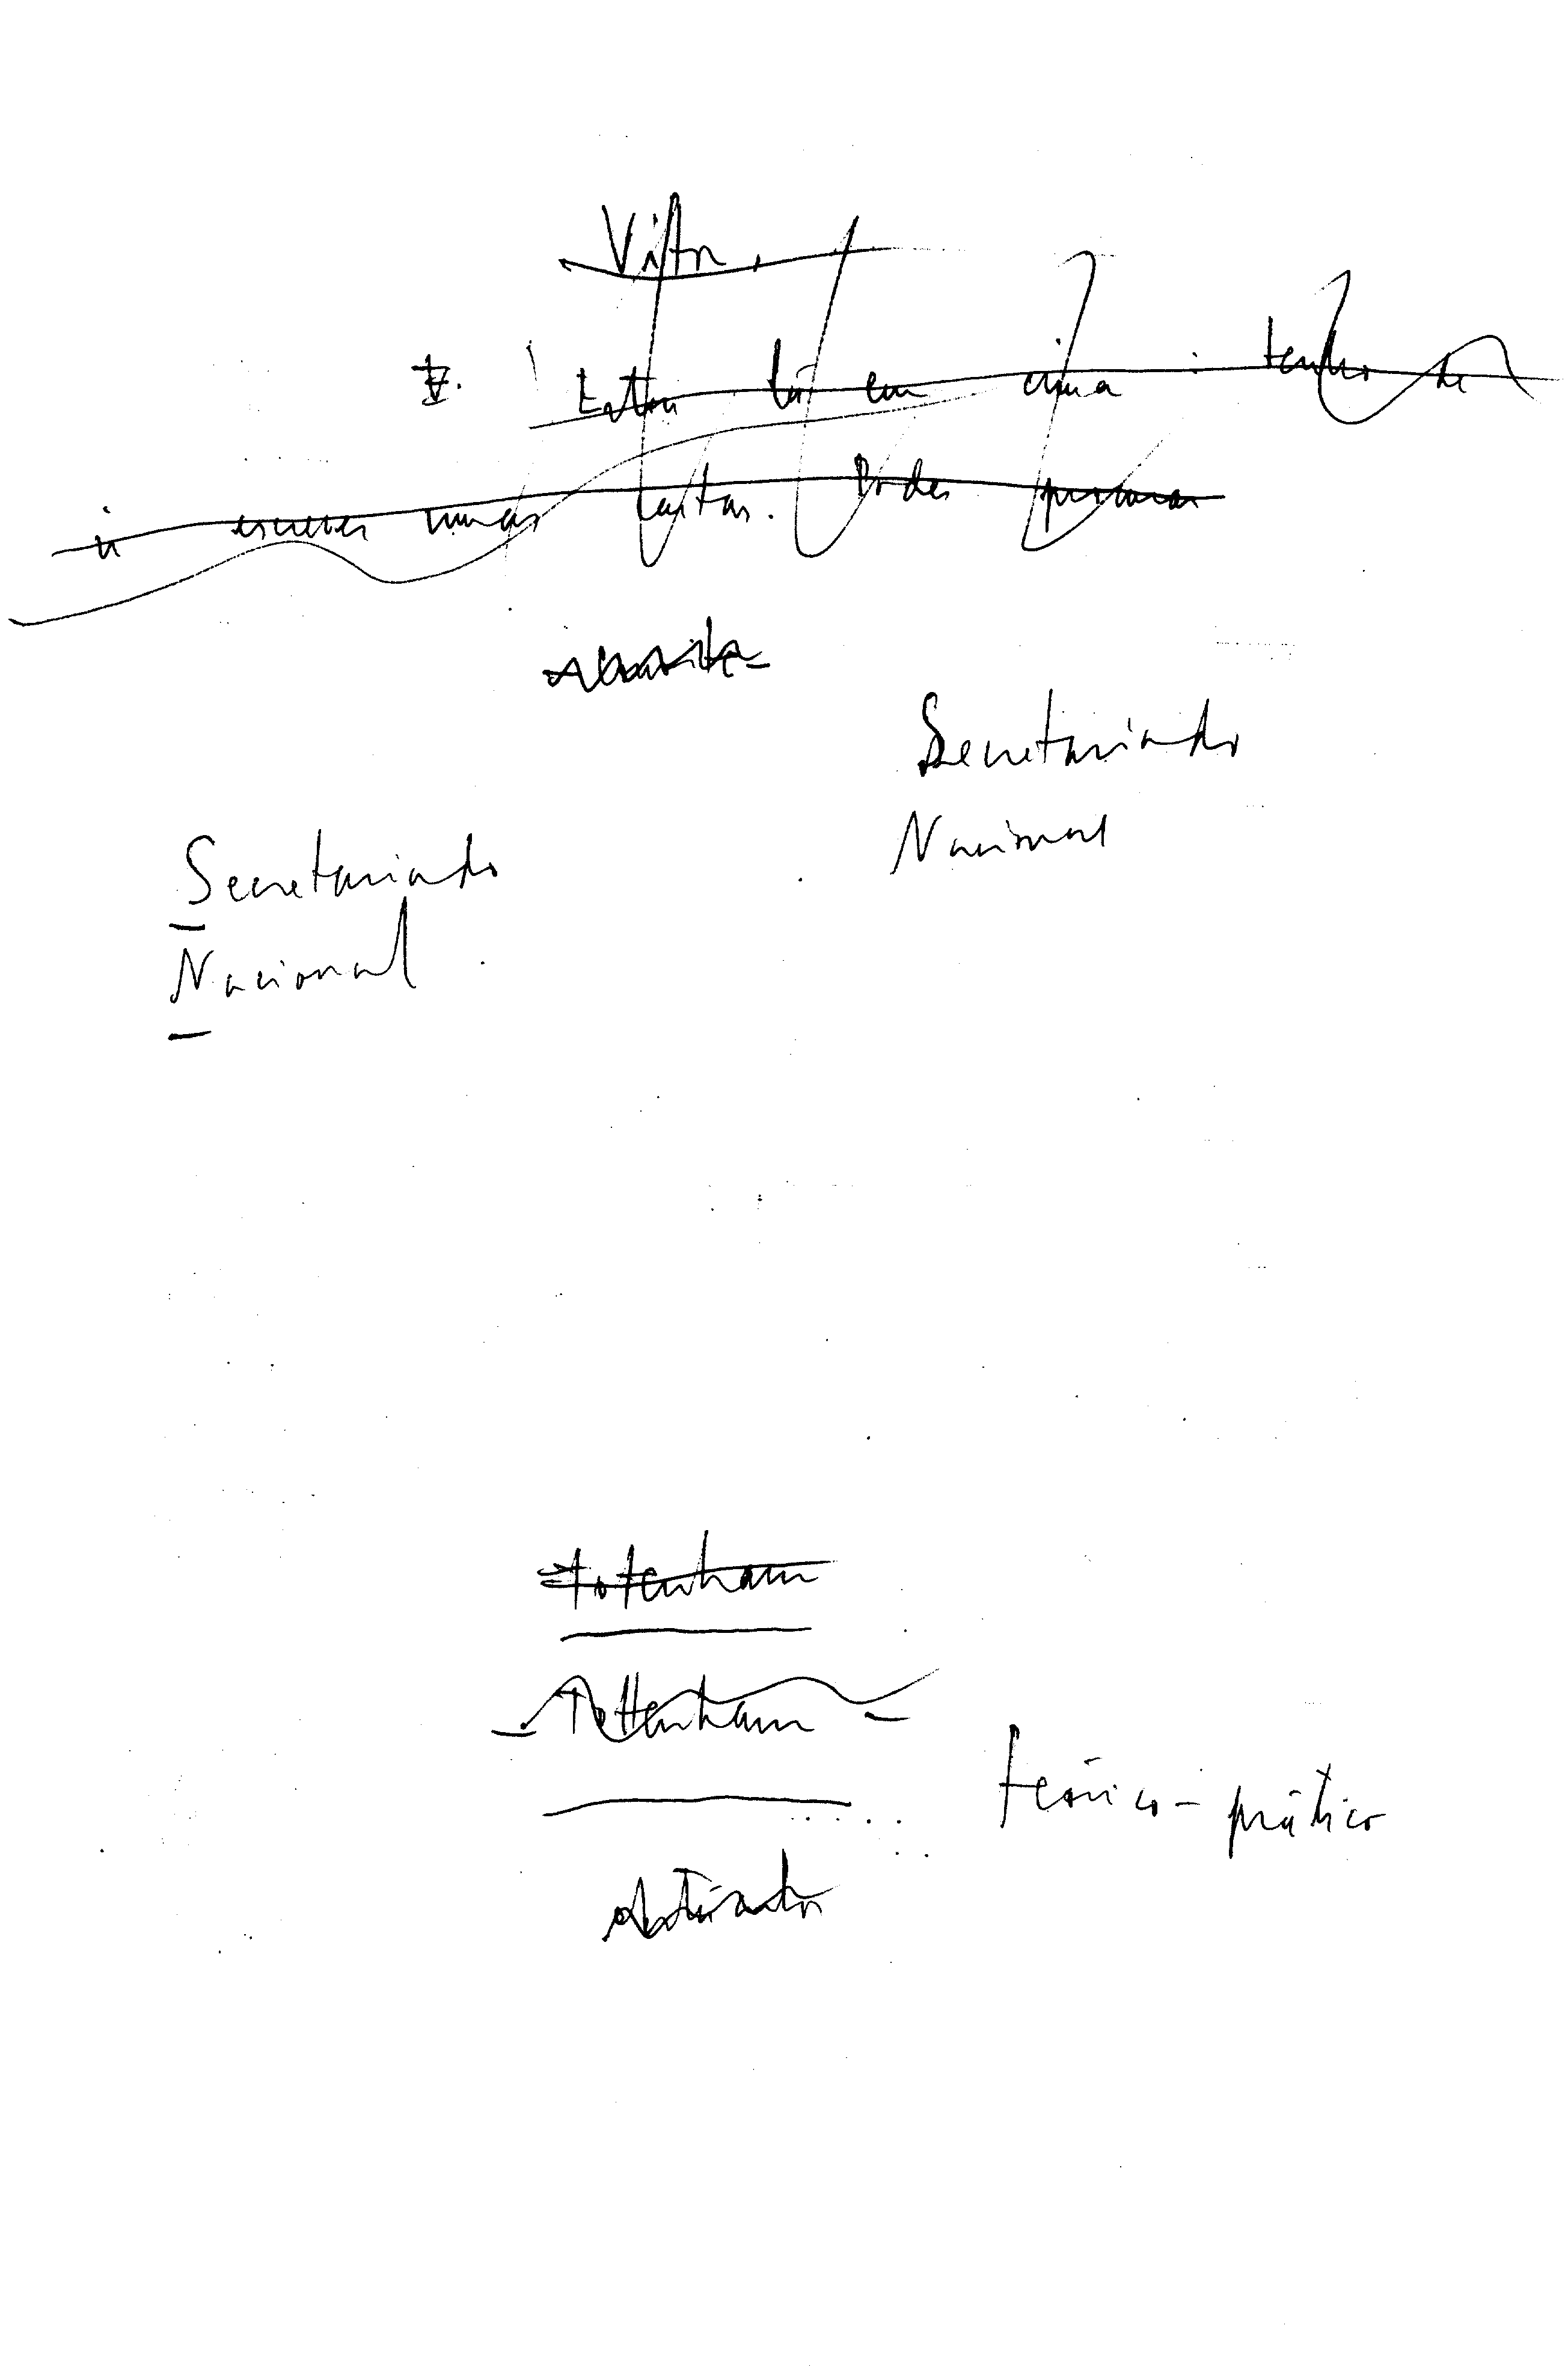 Vítor,
Estou lá em cima: tenho de
ir escrever umas cartas. Podes
Secretariado
Nacional
Secretariado
Nacional
Totenham
Tottenham
teórico-prático